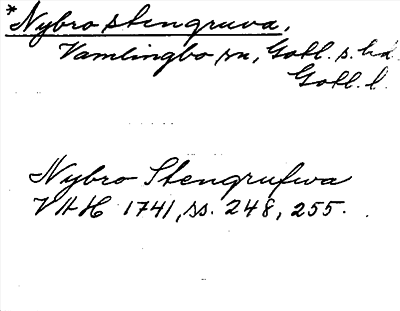 *Nybro stengruva,
Vamlingbo sn, Gotl. s. hd.
Gotl. l.
Nybro Stengrufwa
VHH 1741, ss. 248, 255.